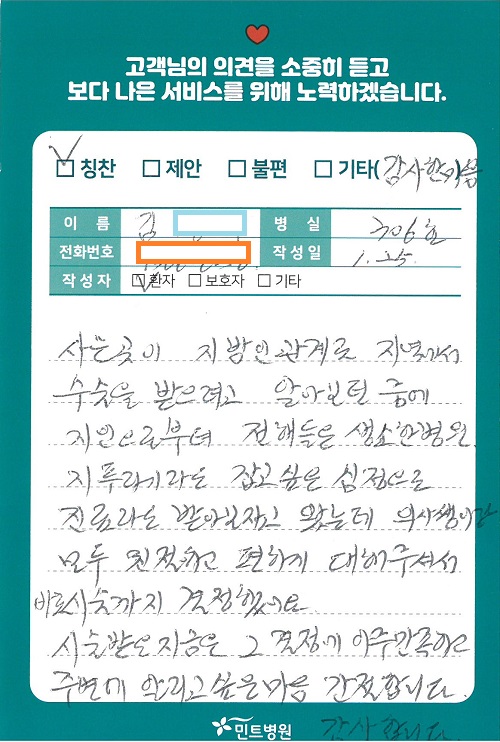 고객님의 의견을 소중히 듣고
보다 나은 서비스를 위해 노력하겠습니다.
칭찬 제안 불편 기타(감사한마음
이 름 김 병 실 306호
전화번호 작성일 1. 25.
작성자 환자 보호자 기타
사는곳이 지방인관계로 지역에서
수술을 받으려고 알아보던 중에
지인으로부터 전해들은 생소한병원.
지푸라기라도 잡고싶은 심정으로
진료라도 받아보자고 왔는데 의사쌤이랑
모두 친절하고 편하게 대해주셔서
바로시술까지 결정했어요.
시술받은 지금은 그 결정에 아주만족하고
주변에 알리고싶은마음 간절합니다.
감사합니다.
민트병원